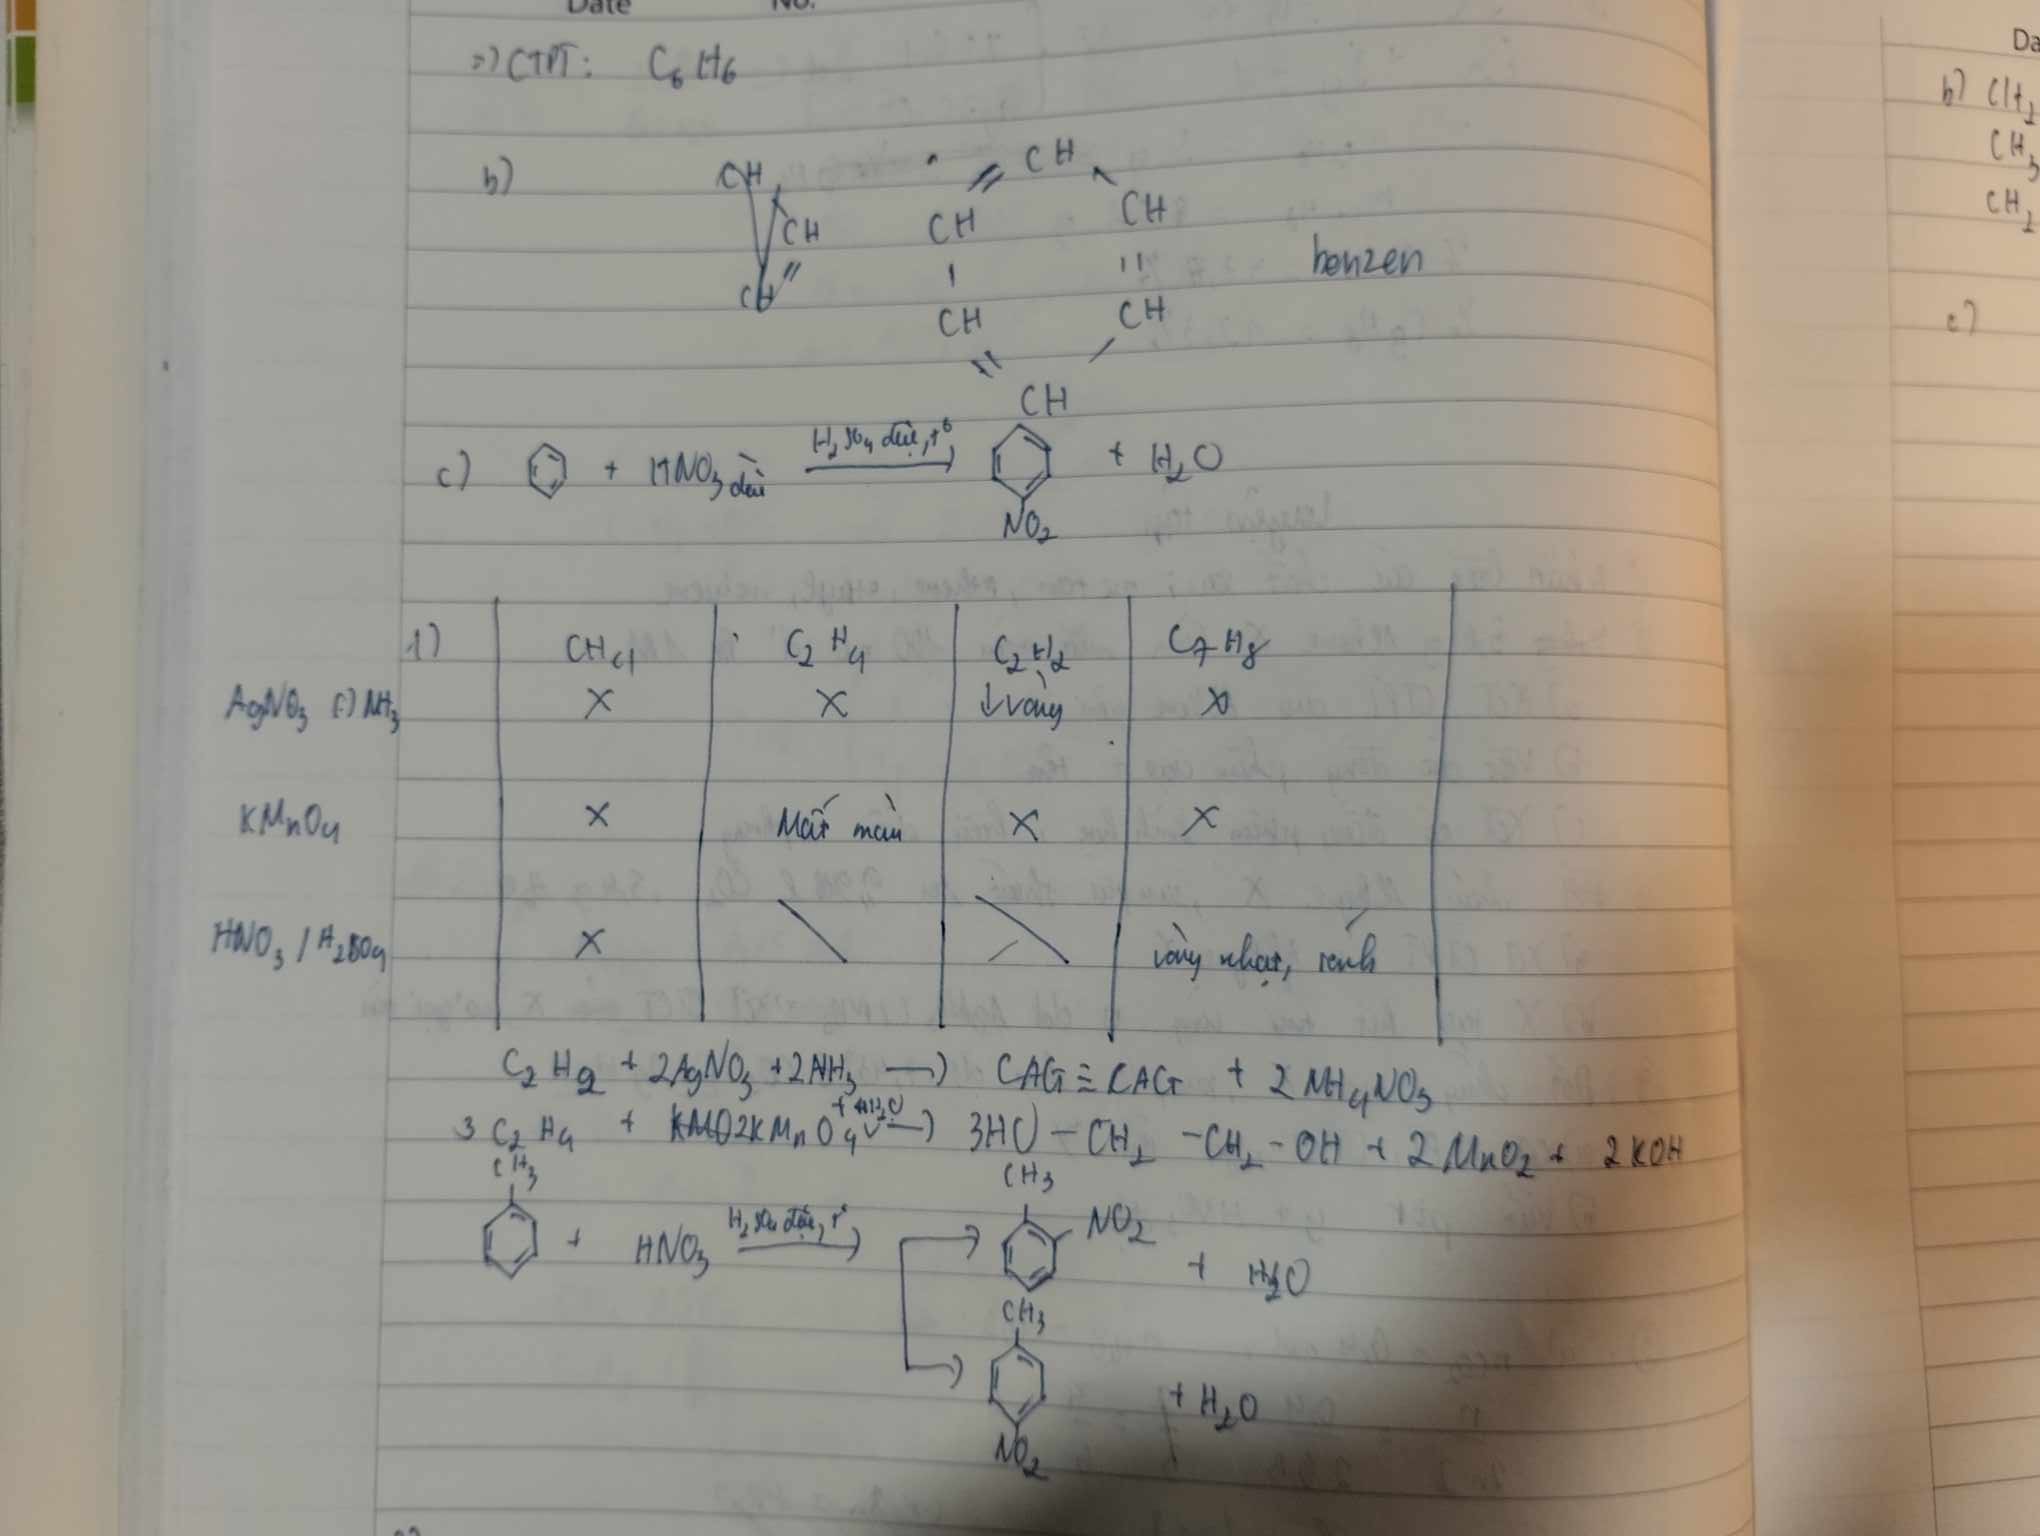 Date No.
=) CTPT: C6H6
b) CH CH CH
CH CH
CH CH CH benzen
CH
c) + HNO3 đặc H2SO4 đặc, t° + H2O
NO2
1) CH4 C2H4 C2H2 C7H8
AgNO3 (-) NH3 X X ↓vàng X
KMnO4 X Mất màu X X
HNO3 / H2SO4 X vàng nhạt, sánh
C2H2 + 2AgNO3 + 2NH3 —) CAG ≡ CAG + 2NH4NO3
3C2H4 + 2KMnO4 + 4H2O —) 3HO - CH2 - CH2 - OH + 2MnO2 + 2KOH
CH3 CH3
+ HNO3 H2SO4 đặc, t° NO2 + H2O
CH3
+ H2O
NO2
Da
b) CH2
CH3
CH2
c)